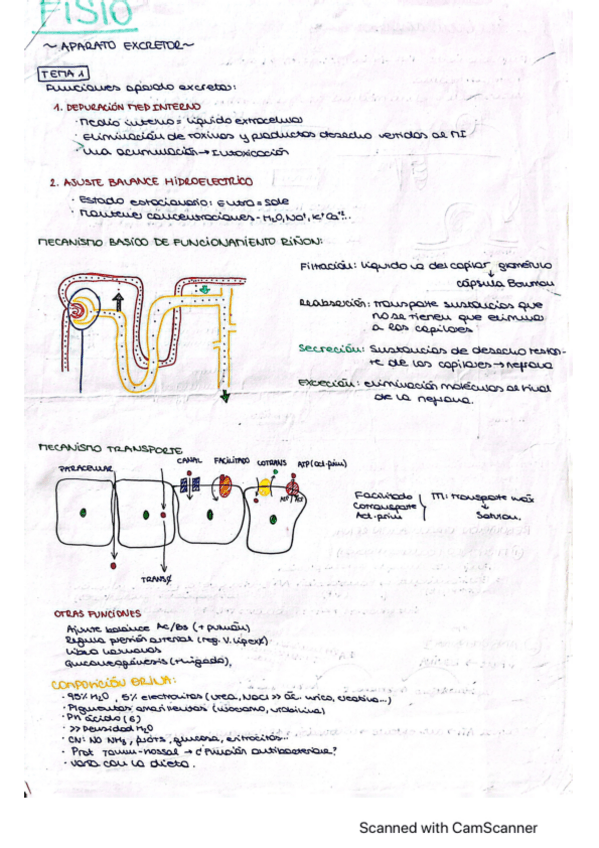 FISIO
~ APARATO EXCRETOR ~
TEMA 1
Funciones aparato excretor:
1. DEPURACIÓN MED INTERNO
· Medio interno = líquido extracelular
· Eliminación de toxinas y productos desecho vertidos al MI
· una acumulación → Intoxicación
2. AJUSTE BALANCE HIDROELECTRICO
· Estado estacionario: Entra = Sale
· Mantener concentraciones - H₂O, Na⁺, K⁺ Ca⁺²...
MECANISMO BASICO DE FUNCIONAMIENTO RIÑON:
Filtración: líquido va del capilar glomérulo
↓
cápsula Bowman
Reabsorción: transporte sustancias que
no se tienen que eliminar
a los capilares
Secreción: sustancias de desecho
de los capilares → nefrona
Excreción: eliminación moléculas al final
de la nefrona.
MECANISMO TRANSPORTE
PARACELULAR
CANAL FACILITADO COTRANS ATP (act.prim)
TRANS
Facilitado
Cotransporte
Act. prim
TM: transporte máx
↓
Saturan.
OTRAS FUNCIONES
Ajuste balance Ac/Bs (+ pulmón)
Regula presión arterial (reg. V. líqex)
Libera hormonas
Gluconeogénesis (+ hígado),
COMPOSICIÓN ORINA:
· 95% H₂O, 5% electrolitos (urea, NaCl >> ác. úrico, creatina...)
· Pigmentos amarillentos (urocromo, urobilina)
· PH ácido (6)
· >> Densidad H₂O
· CN: NO NH₃, prots, glucosa, eritrocitos...
· Prot Tamm-Hossal → ¿Función antibacteriana?
· varía con la dieta.
Scanned with CamScanner